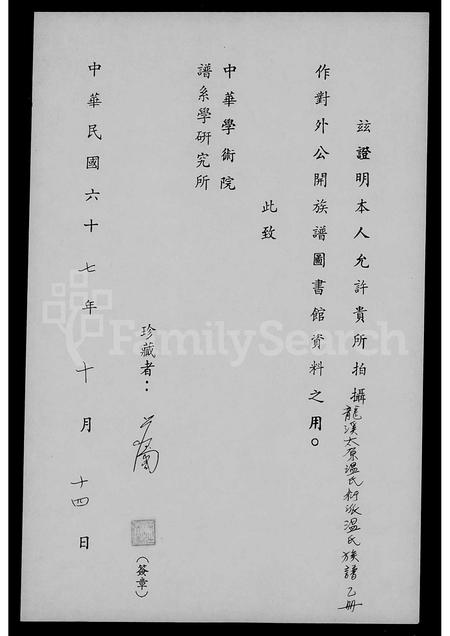 玆證明本人允許貴所拍攝龍溪太原溫氏新派溫氏族譜乙冊
作對外公開族譜圖書館資料之用。
此致
中華學術院
譜系學硏究所
珍藏者：
（簽章）
中華民國六十七年十月十四日
FamilySearch